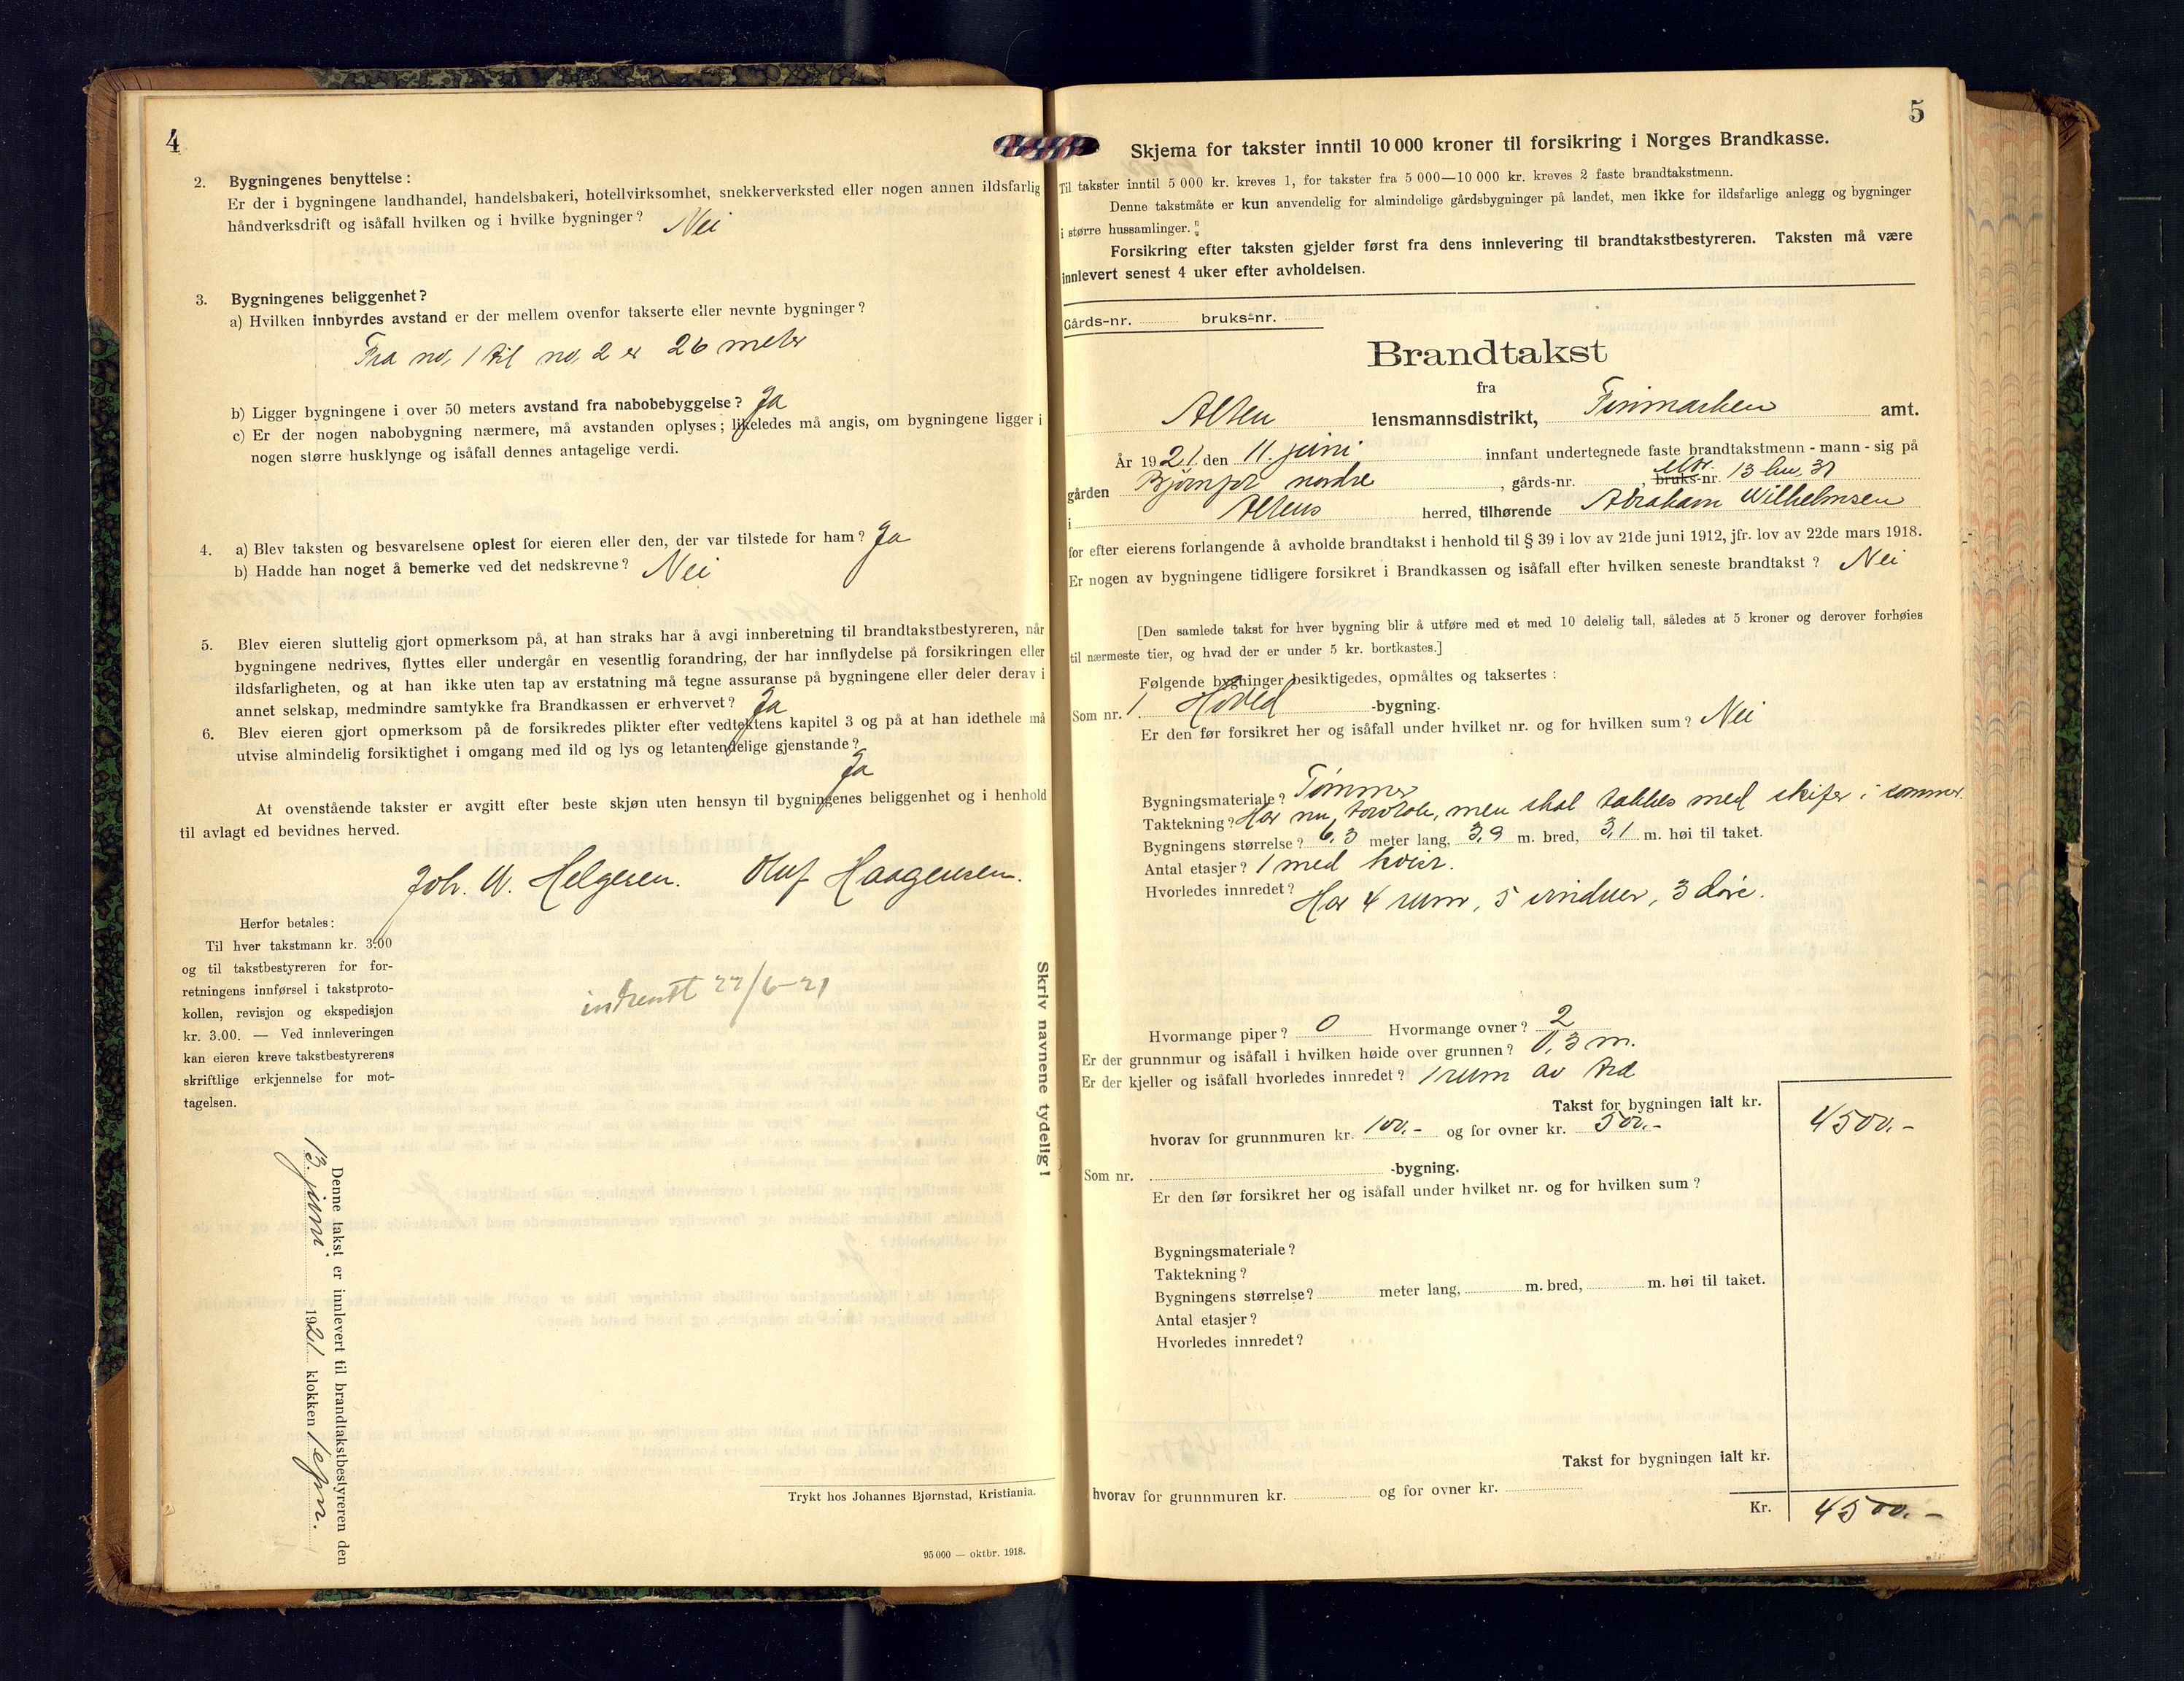 4
2. Bygningenes benyttelse:
Er der i bygningene landhandel, handelsbakeri, hotellvirksomhet, snekkerverksted eller nogen annen ildsfarlig
håndverksdrift og isåfall hvilken og i hvilke bygninger? Nei
3. Bygningenes beliggenhet?
a) Hvilken innbyrdes avstand er der mellem ovenfor takserte eller nevnte bygninger?
Fra no, 1 til no, 2 er 26 meter
b) Ligger bygningene i over 50 meters avstand fra nabobebyggelse? Ja
c) Er der nogen nabobygning nærmere, må avstanden oplyses; likeledes må angis, om bygningene ligger i
nogen større husklynge og isåfall dennes antagelige verdi.
4. a) Blev taksten og besvarelsene oplest for eieren eller den, der var tilstede for ham? Ja
b) Hadde han noget å bemerke ved det nedskrevne? Nei
5. Blev eieren sluttelig gjort opmerksom på, at han straks har å avgi innberetning til brandtakstbestyreren, når
bygningene nedrives, flyttes eller undergår en vesentlig forandring, der har innflydelse på forsikringen eller
ildsfarligheten, og at han ikke uten tap av erstatning må tegne assuranse på bygningene eller deler derav i
annet selskap, medmindre samtykke fra Brandkassen er erhvervet? Ja
6. Blev eieren gjort opmerksom på de forsikredes plikter efter vedtektens kapitel 3 og på at han idethele må
utvise almindelig forsiktighet i omgang med ild og lys og letantendelige gjenstande?
Ja
At ovenstående takster er avgitt efter beste skjøn uten hensyn til bygningenes beliggenhet og i henhold
til avlagt ed bevidnes herved.
Joh. W. Helgesen. Oluf Haagensen.
Herfor betales:
Til hver takstmann kr. 3.00
og til takstbestyreren for for-
retningens innførsel i takstproto-
kollen, revisjon og ekspedisjon
kr. 3.00. — Ved innleveringen
kan eieren kreve takstbestyrerens
skriftlige erkjennelse for mot-
tagelsen.
indsendt 22/6-21
Denne takst er innlevert til brandtakstbestyreren den
13. juni 1921 klokken 1 efm.
Skriv navnene tydelig!
Trykt hos Johannes Bjørnstad, Kristiania.
95 000 — oktbr. 1918.
5
Skjema for takster inntil 10 000 kroner til forsikring i Norges Brandkasse.
Til takster inntil 5 000 kr. kreves 1, for takster fra 5 000—10 000 kr. kreves 2 faste brandtakstmenn.
Denne takstmåte er kun anvendelig for almindelige gårdsbygninger på landet, men ikke for ildsfarlige anlegg og bygninger
i større hussamlinger.
Forsikring efter taksten gjelder først fra dens innlevering til brandtakstbestyreren. Taksten må være
innlevert senest 4 uker efter avholdelsen.
Gårds-nr. bruks-nr.
Brandtakst
fra
Alten lensmannsdistrikt, Finmarken amt.
År 1921 den 11. juni innfant undertegnede faste brandtakstmenn - mann - sig på
gården nordre, gårds-nr. , bruks-nr. 13
i Altens herred, tilhørende Abraham Wilhelmsen
for efter eierens forlangende å avholde brandtakst i henhold til § 39 i lov av 21de juni 1912, jfr. lov av 22de mars 1918.
Er nogen av bygningene tidligere forsikret i Brandkassen og isåfall efter hvilken seneste brandtakst? Nei
[Den samlede takst for hver bygning blir å utføre med et med 10 delelig tall, således at 5 kroner og derover forhøies
til nærmeste tier, og hvad der er under 5 kr. bortkastes.]
Følgende bygninger besiktigedes, opmåltes og taksertes:
Som nr. 1 Hoved -bygning.
Er den før forsikret her og isåfall under hvilket nr. og for hvilken sum? Nei
Bygningsmateriale? Tømmer
Taktekning? Har nu, men skal tækkes med skifer i sommer
Bygningens størrelse? 6,3 meter lang, 3,9 m. bred, 3,1 m. høi til taket.
Antal etasjer? 1 med kvist.
Hvorledes innredet? Har 4 rum, 5 vinduer, 3 døre.
Hvormange piper? 0 Hvormange ovner? 2
Er der grunnmur og isåfall i hvilken høide over grunnen? 0,3 m.
Er der kjeller og isåfall hvorledes innredet? 1 rum av træ
Takst for bygningen ialt kr.
hvorav for grunnmuren kr. 100.- og for ovner kr. 500.- 4500.-
Som nr. -bygning.
Er den før forsikret her og isåfall under hvilket nr. og for hvilken sum?
Bygningsmateriale?
Taktekning?
Bygningens størrelse? meter lang, m. bred, m. høi til taket.
Antal etasjer?
Hvorledes innredet?
Takst for bygningen ialt kr.
hvorav for grunnmuren kr. og for ovner kr.
Kr. 4500.-